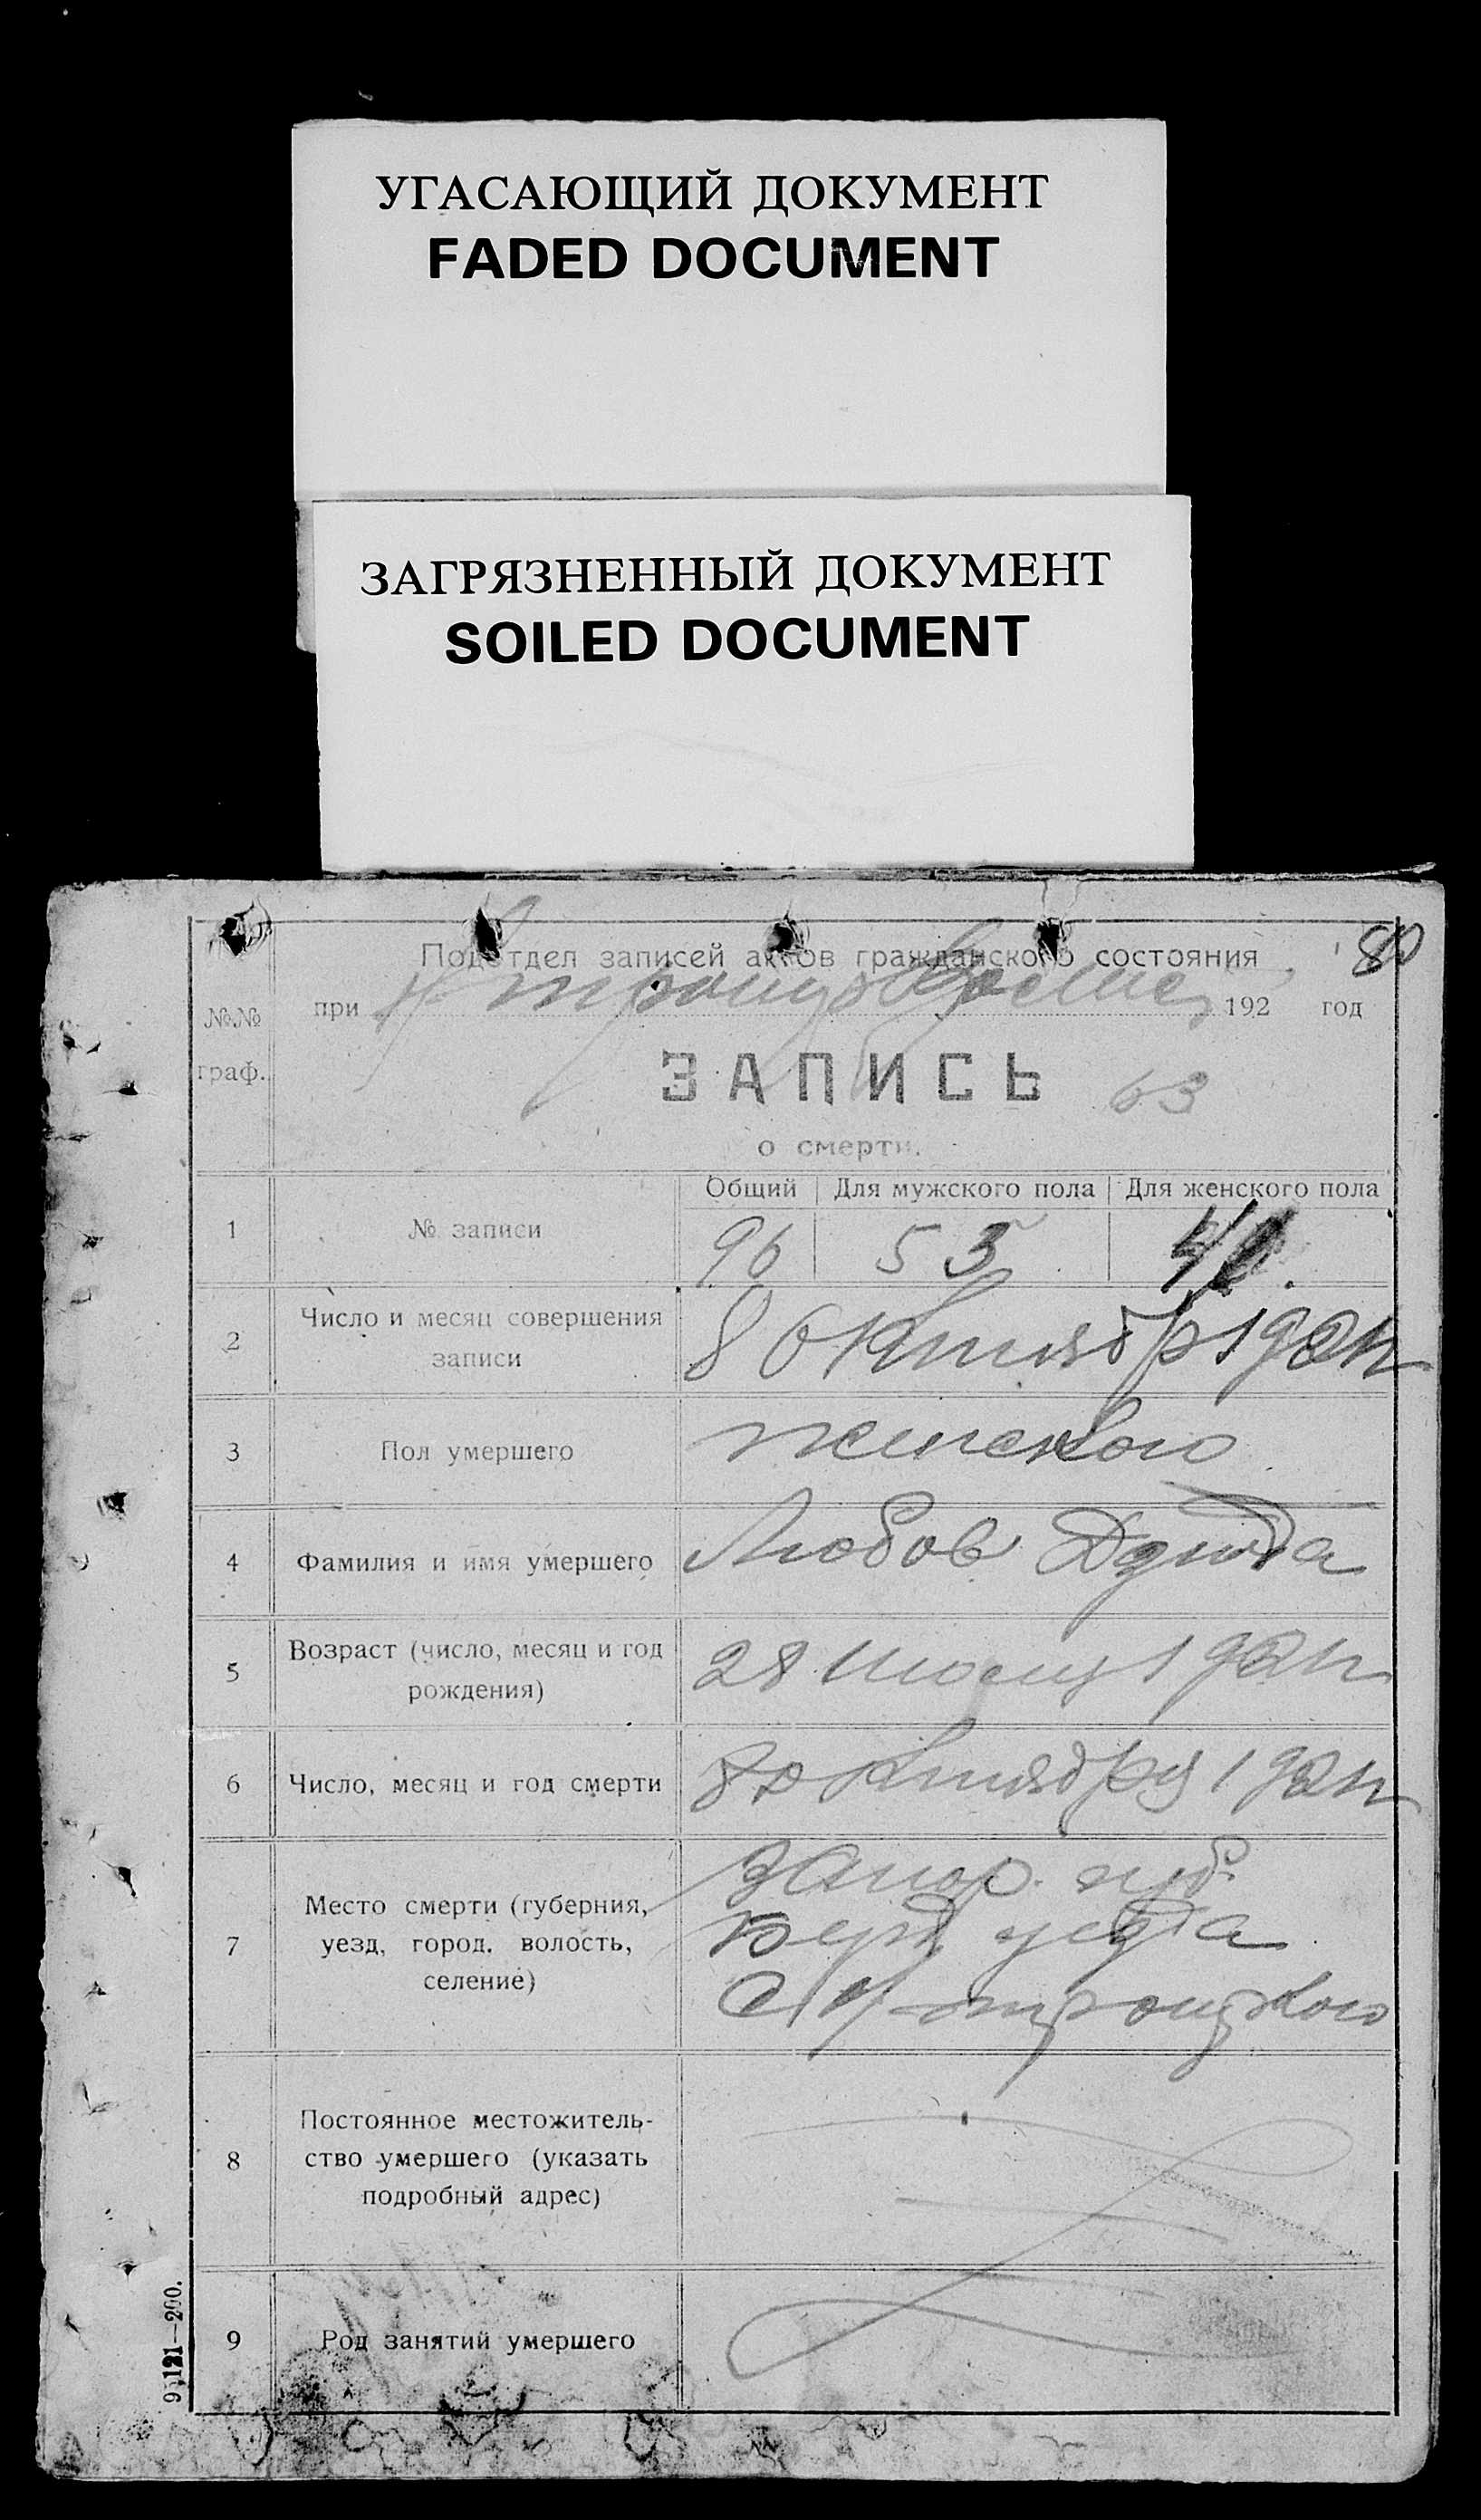 УГАСАЮЩИЙ ДОКУМЕНТ
FADED DOCUMENT
ЗАГРЯЗНЕННЫЙ ДОКУМЕНТ
SOILED DOCUMENT
80
Подотдел записей актов гражданского состояния
№№ граф.
при 192 год
ЗАПИСЬ 63
о смерти.
Общий Для мужского пола Для женского пола
1 № записи 96 53
2 Число и месяц совершения записи 8 Октябр
3 Пол умершего женского
4 Фамилия и имя умершего Любов
5 Возраст (число, месяц и год рождения) 28
6 Число, месяц и год смерти 8 октября
7 Место смерти (губерния, уезд, город, волость, селение) Запор. губ.
Берд уезда
С Н троицкого
8 Постоянное местожитель-
ство умершего (указать
подробный адрес)
9 Род занятий умершего